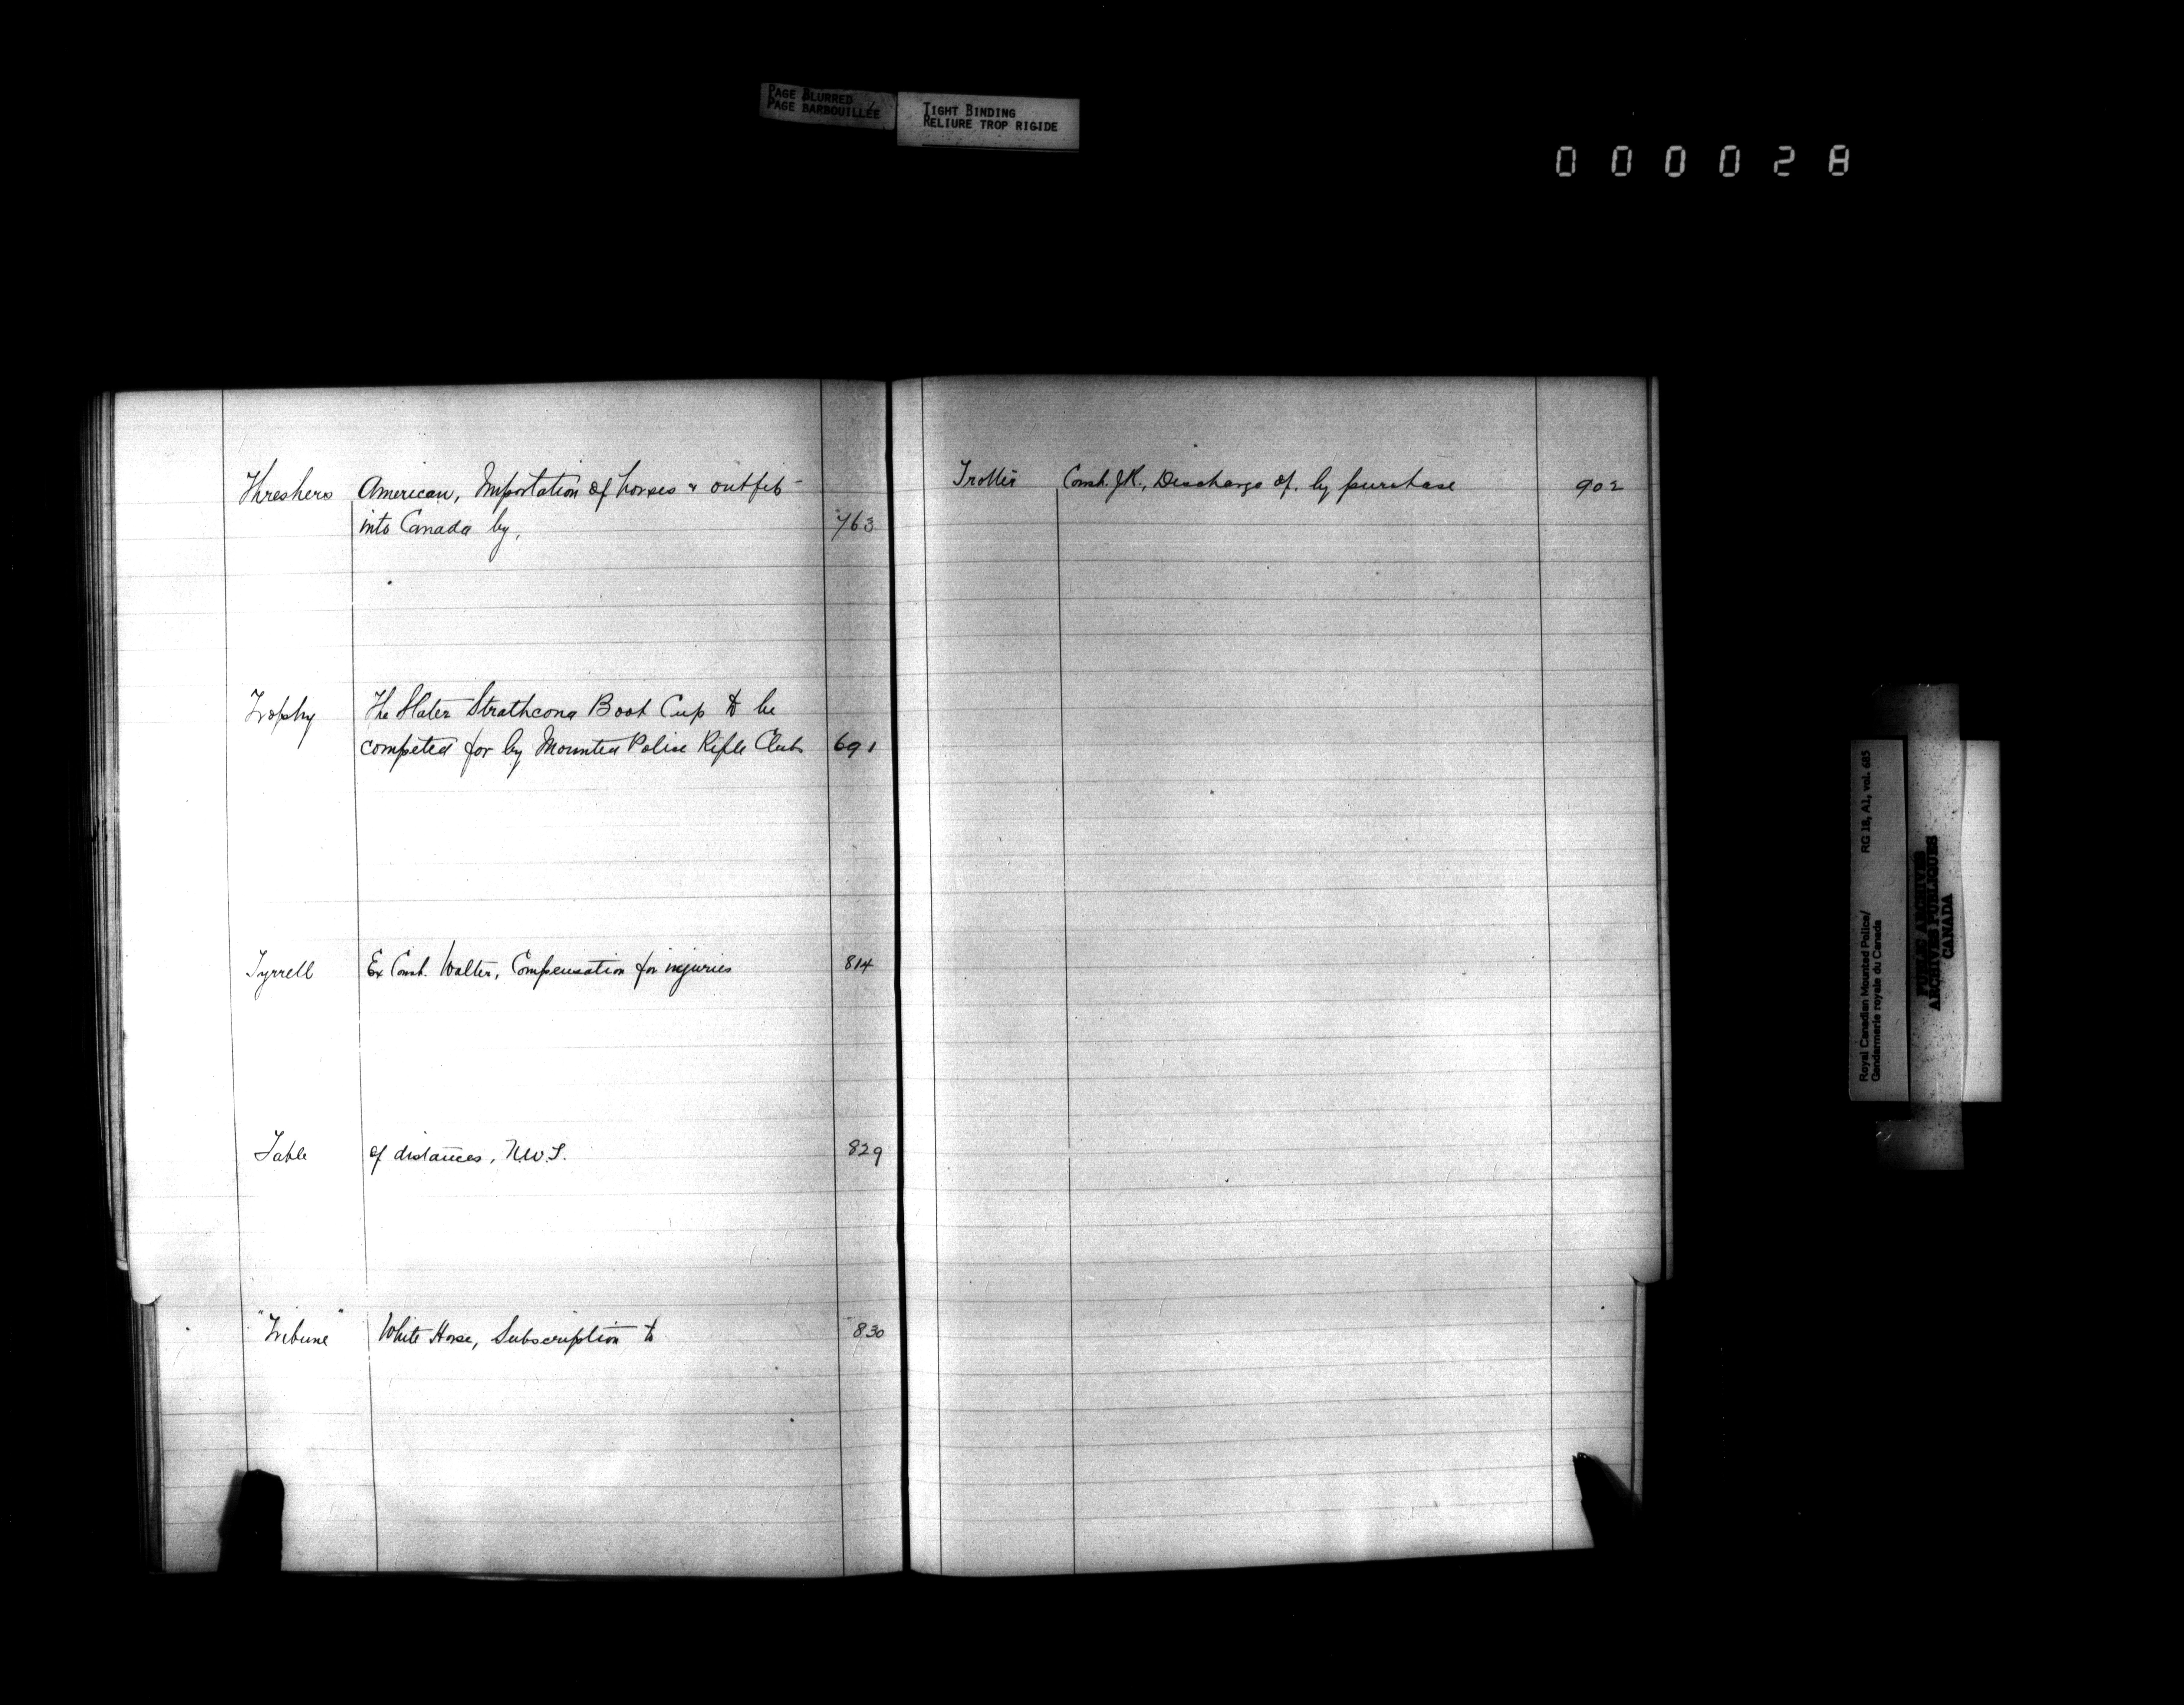 PAGE BLURRED
PAGE BARBOUILLÉE
TIGHT BINDING
RELIURE TROP RIGIDE
000028
Threshers American, Importation of horses & outfits
into Canada by, 763
Trophy The Slater Strathcona Boot Cup to be
competed for by Mounted Police Rifle Clubs 691
Tyrrell Ex Const. Walter, Compensation for injuries 814
Table of distances, N.W.T. 829
"Tribune" White Horse, Subscription to 830
Trotter Const. J.K., Discharge of, by purchase 902
Royal Canadian Mounted Police/ RG 18, A1, vol. 685
Gendarmerie royale du Canada
PUBLIC ARCHIVES
ARCHIVES PUBLIQUES
CANADA